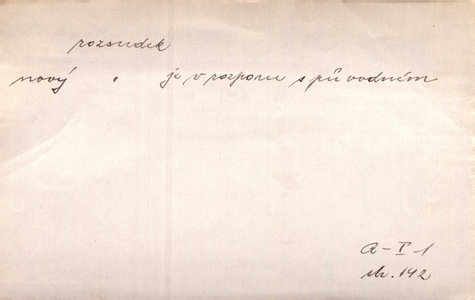 rozsudek
nový " je v rozporu s původním
A-I 1
str. 142